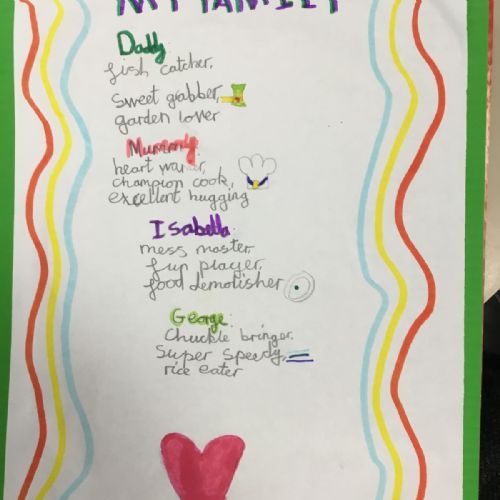 MY FAMILY
Daddy
fish catcher,
sweet grabber,
garden lover
Mummy
heart warmer,
champion cook,
excellent hugging
Isabella
mess master,
fun player,
food demolisher
George
Chuckle bringer,
Super Speedy,
rice eater